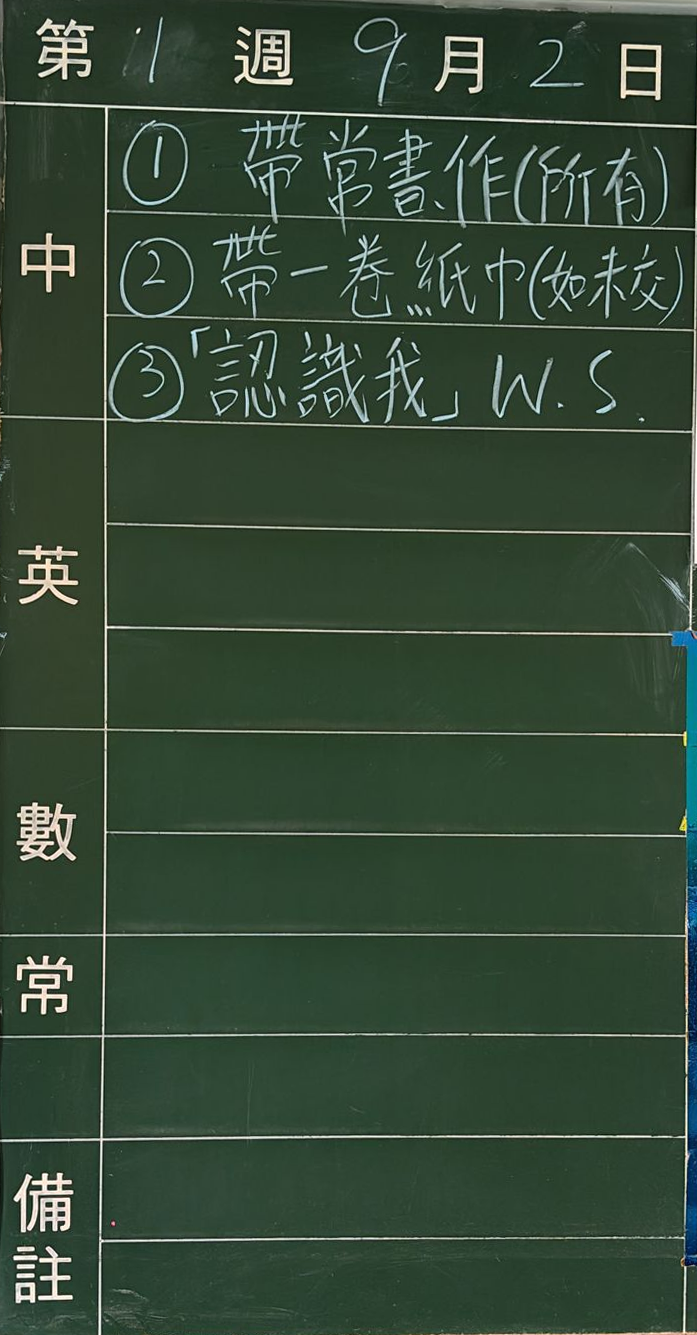 第 1 週 9 月 2 日
中
① 帶常書、作(所有)
② 帶一卷紙巾(如未交)
③「認識我」W.S.
英
數
常
備註